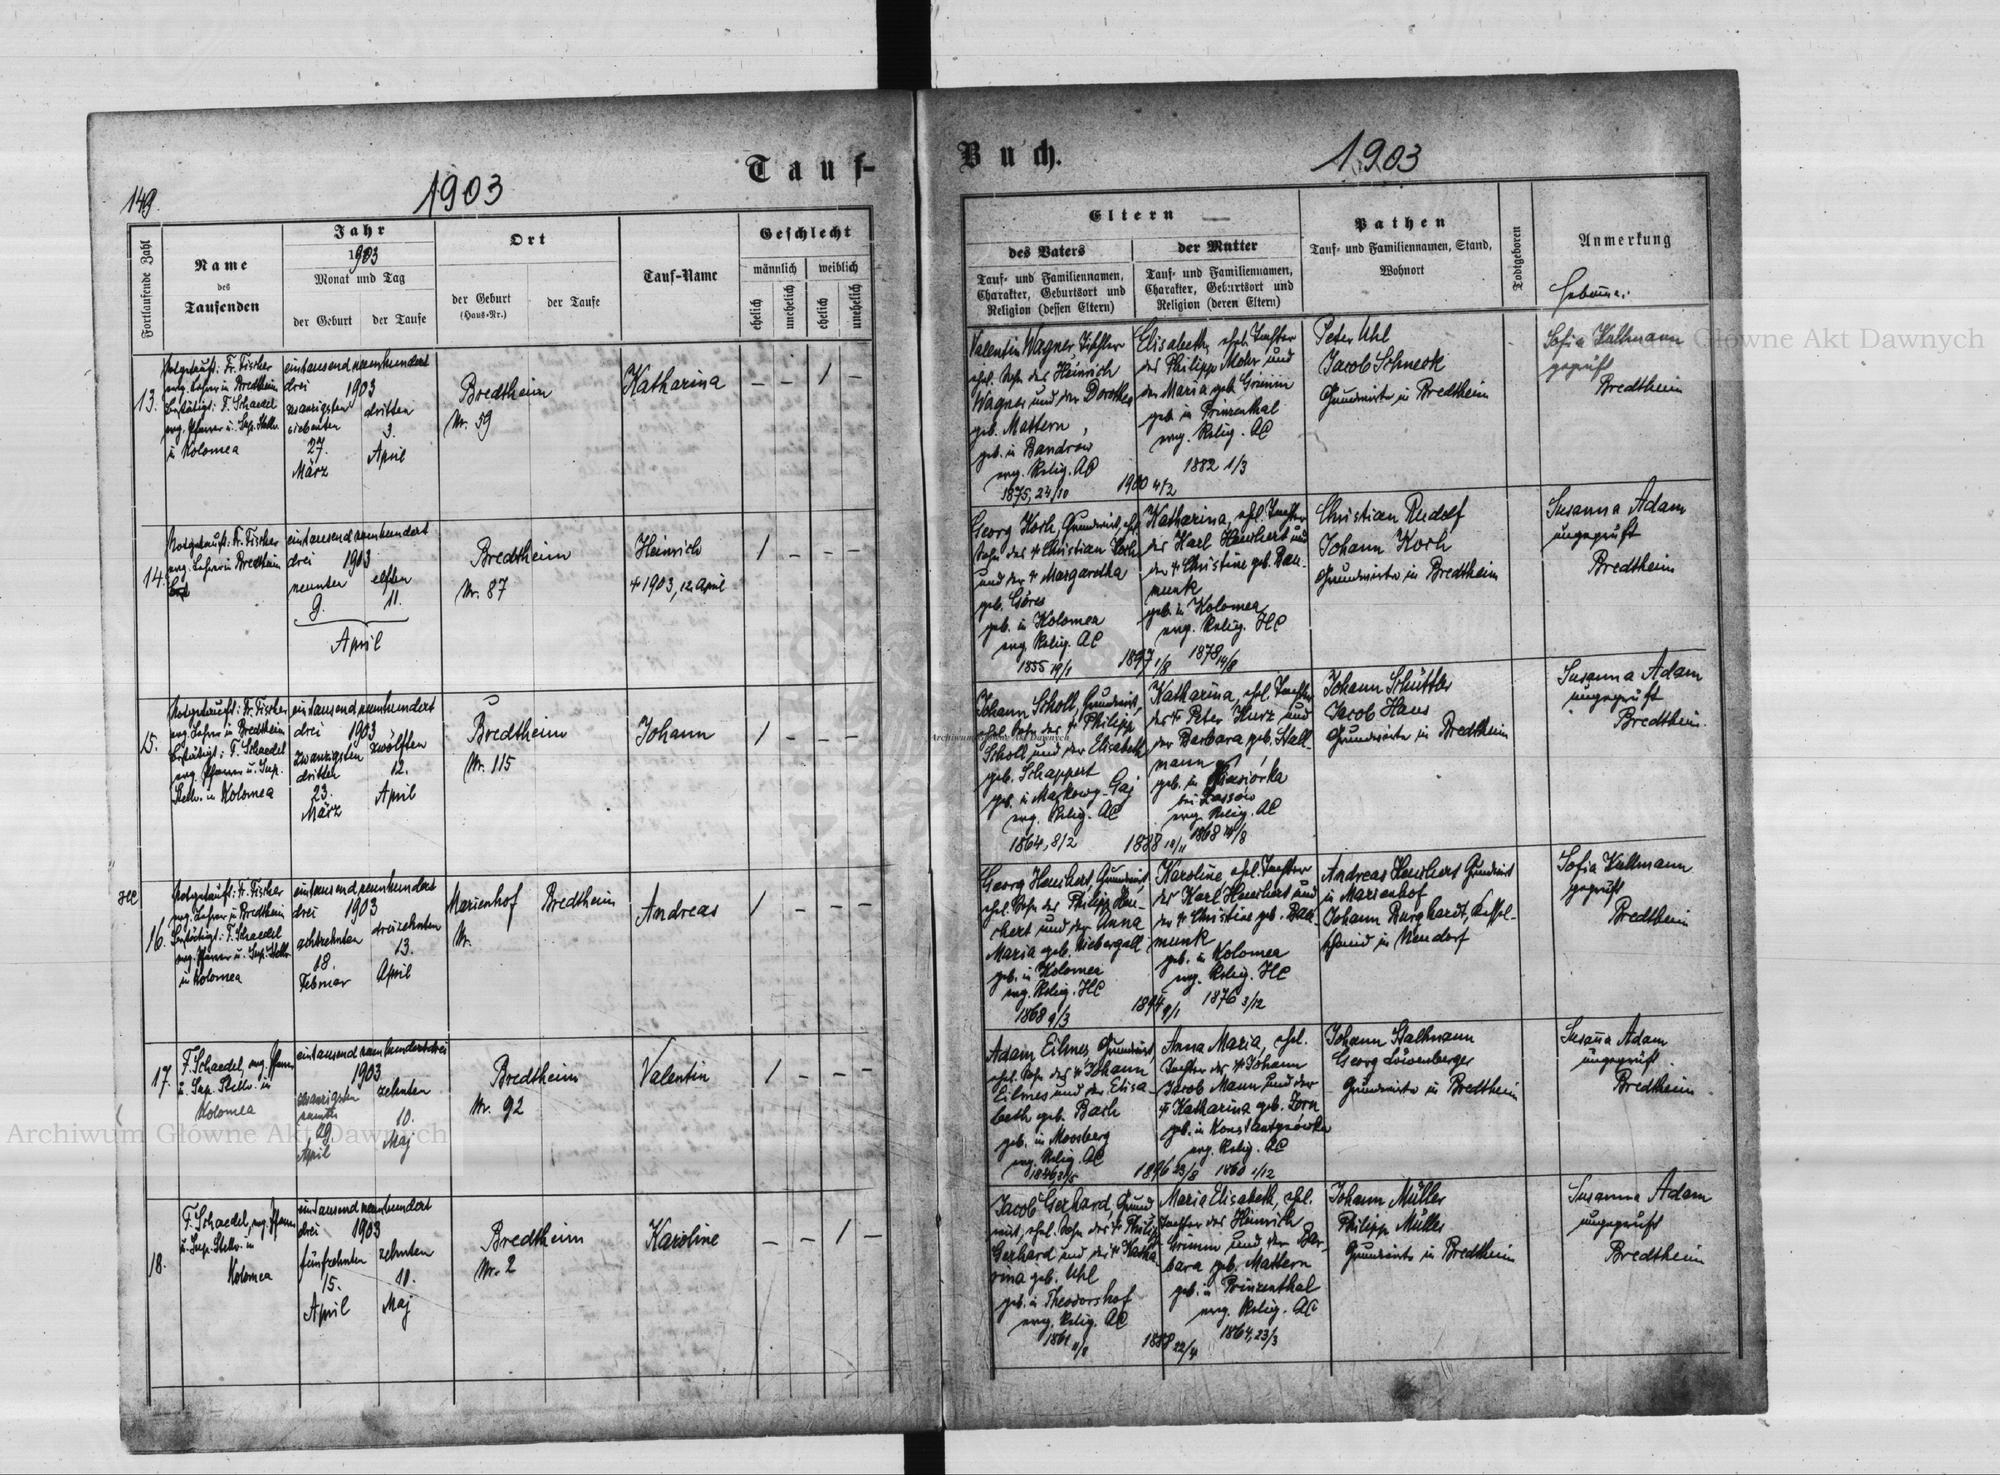 149.
1903
Tauf-
Buch.
1903
Fortlaufende Zahl
Name
des
Taufenden
Jahr
1903
Monat und Tag
der Geburt
der Taufe
Ort
der Geburt
(Haus-Nr.)
der Taufe
Tauf-Name
Geschlecht
männlich
weiblich
ehelich
unehelich
ehelich
unehelich
Eltern
des Vaters
Tauf- und Familiennamen,
Charakter, Geburtsort und
Religion (dessen Eltern)
der Mutter
Tauf- und Familiennamen,
Charakter, Geburtsort und
Religion (deren Eltern)
Pathen
Tauf- und Familiennamen, Stand,
Wohnort
Todtgeboren
Anmerkung
13.
Notgetauft: Fr. Fischer
evg. Lehrer in Bredtheim
Bestätigt: F. Schaedel
evg. Pfarrer u. Sup. Stellv.
in Kolomea
eintausend neunhundert
drei 1903
zwanzigsten
siebenten
27.
März
dritten
3.
April
Bredtheim
Nr. 59
Katharina
– – 1 –
Valentin Wagner, Tischler
ehel. Sohn des Heinrich
Wagner und der Dorothea
geb. Mattern
geb. in Bandrow
evg. Relig. AC
1875, 24/10
1900 4/2
Elisabeth, ehel. Tochter
des Philipp Mohr und
der Maria geb. Grimm
geb. in Prinzenthal
evg. Relig. AC
1882 1/3
Peter Uhl
Jacob Schneck
Grundwirte in Bredtheim
Sofia Kullmann
geprüft
Bredtheim
14.
Notgetauft: Fr. Fischer
evg. Lehrer in Bredtheim
eintausend neunhundert
drei 1903
neunten
9.
elften
11.
April
Bredtheim
Nr. 87
Heinrich
† 1903, 12. April
1 – – –
Georg Koch, Grundwirt, ehel.
Sohn des † Christian Koch
und der † Margaretha
geb. Göres
geb. in Kolomea
evg. Relig. AC
1855 19/1
1897 1/8
Katharina, ehel. Tochter
des Karl Heuchert und
der † Christine geb. Dau-
munk
geb. in Kolomea
evg. Relig. HC
1878 14/8
Christian Rudolf
Johann Koch
Grundwirte in Bredtheim
Susanna Adam
ungeprüft
Bredtheim
15.
Notgetauft: Fr. Fischer
evg. Lehrer in Bredtheim
Bestätigt: F. Schaedel
evg. Pfarrer u. Sup.
Stellv. in Kolomea
eintausend neunhundert
drei 1903
zwanzigsten
dritten
23.
März
zwölften
12.
April
Bredtheim
Nr. 115
Johann
1 – – –
Johann Scholl, Grundwirt,
ehel. Sohn des † Philipp
Scholl und der Elisabeth
geb. Schappert
geb. in Makowy-Gaj
evg. Relig. AC
1864, 8/2
1888 18/11
Katharina, ehel. Tochter
des † Peter Kurz und
der Barbara geb. Stall-
mann
geb. in
bei Zassów
evg. Relig. AC
Johann Schüttler
Jacob Haus
Grundwirte in Bredtheim
Susanna Adam
ungeprüft
Bredtheim
HC
16.
Notgetauft: Fr. Fischer
evg. Lehrer in Bredtheim
Bestätigt: F. Schaedel
evg. Pfarrer u. Sup. Stellv.
in Kolomea
eintausend neunhundert
drei 1903
achtzehnten
18.
Februar
dreizehnten
13.
April
Marienhof
Nr.
Bredtheim
Andreas
1 – – –
Georg Heuchert, Grundwirt
ehel. Sohn des Philipp Heu-
chert und der Anna
Maria geb. Niebergall
geb. in Kolomea
evg. Relig. HC
1868 9/3
1894 9/1
Karoline, ehel. Tochter
des Karl Heuchert und
der † Christine geb. Dau-
munk
geb. in Kolomea
evg. Relig. HC
1876 3/12
Andreas Heuchert Grundwirt
in Marienhof
Johann Burghardt, Kessel-
schmied in Neudorf
Sofia Kullmann
geprüft
Bredtheim
17.
F. Schaedel, evg. Pfarrer
u. Sup. Stellv. in
Kolomea
eintausend neunhundertdrei
1903
zwanzigsten
neunten
29.
April
zehnten
10.
Maj
Bredtheim
Nr. 92
Valentin
1 – – –
Adam Eilmes, Grundwirt,
ehel. Sohn des † Johann
Eilmes und der Elisa-
beth geb. Bach
geb. in Moosberg
evg. Relig. AC
1896 23/8
Anna Maria, ehel.
Tochter des † Johann
Jacob Mann und der
† Katharina geb. Zorn
geb. in Konstantynówka
evg. Relig. AC
1860 1/12
Johann Stallmann
Georg Löwenberger
Grundwirte in Bredtheim
Susanna Adam
ungeprüft
Bredtheim
18.
F. Schaedel, evg. Pfarrer
u. Sup. Stellv. in
Kolomea
eintausend neunhundert
drei 1903
fünfzehnten
15.
April
zehnten
10.
Maj
Bredtheim
Nr. 2
Karoline
– – 1 –
Jacob Gerhard, Grund-
wirt, ehel. Sohn des † Philipp
Gerhard und der † Katha-
rina geb. Uhl
geb. in Theodorshof
evg. Relig. AC
1861
1888 22/4
Maria Elisabeth, ehel.
Tochter des Heinrich
Grimm und der Bar-
bara geb. Mattern
geb. in Prinzenthal
evg. Relig. AC
1864, 23/3
Johann Müller
Philipp Müller
Grundwirte in Bredtheim
Susanna Adam
ungeprüft
Bredtheim
Archiwum Główne Akt Dawnych